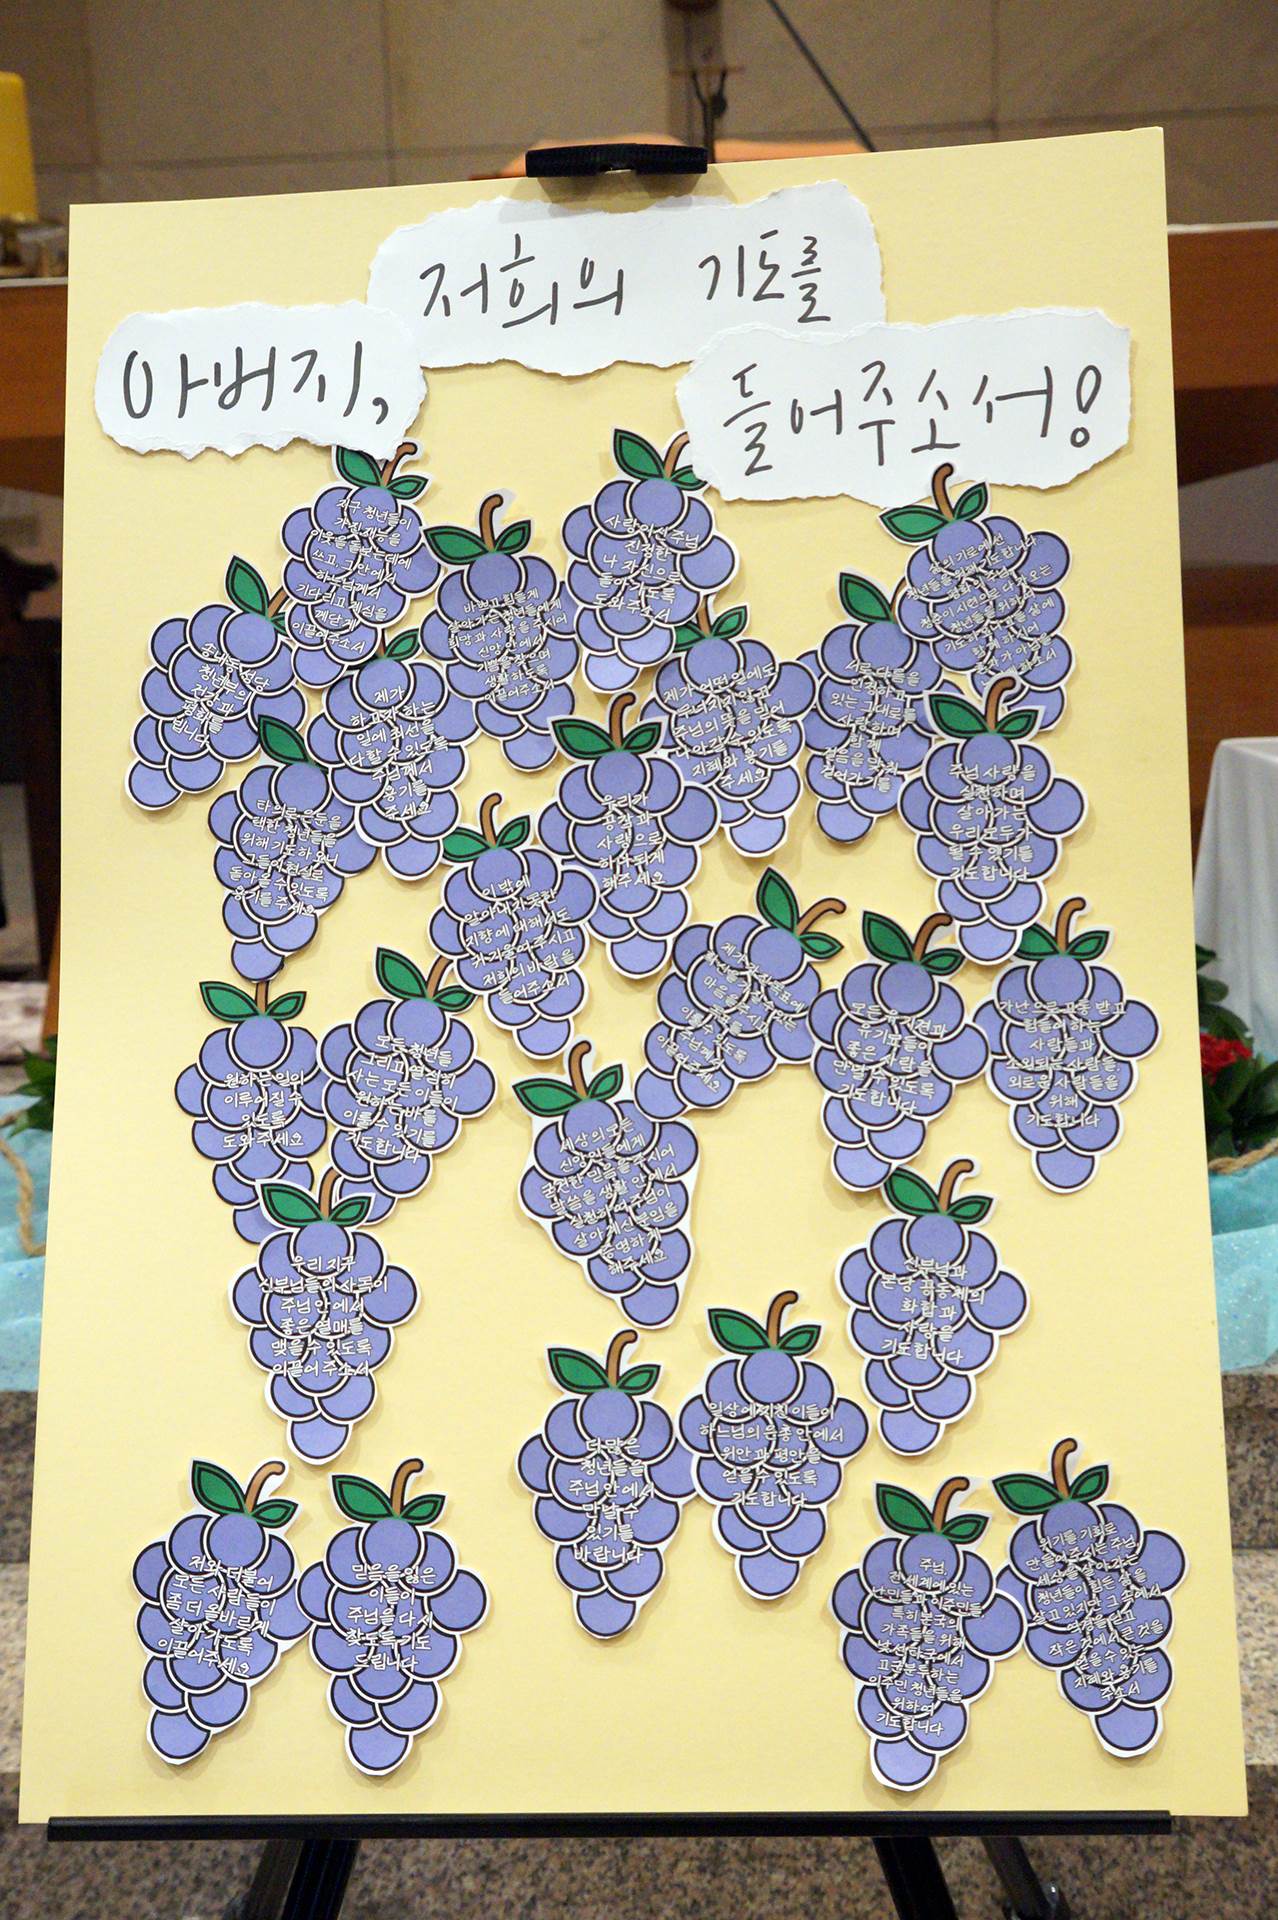 아버지,
저희의 기도를
들어주소서!
지구 청년들이
가진 재능을
이웃을 돌보는데에
쓰고, 그 안에서
하느님께서
기다리고 계심을
깨닫게
이끌어주소서
바쁘고 힘들게
살아가는 청년들에게
희망과 사랑을 주시어
신앙 안에서
기쁨을 찾으며
생활하도록
이끌어주소서
사랑이신 주님
진정한
나 자신으로
돌아가도록
도와주소서
삶의 기로에선
청년들을
송내동 성당
청년부의
건강과
평화를
빕니다
제가
하고자 하는
일에 최선을
다할 수 있도록
주님께서
용기를
주세요
제가 어떤 일에도
무너지지 않고
주님의 뜻을 믿어
나아갈 수 있도록
지혜와 용기를
주세요
서로 다름을
인정하고
있는 그대로를
사랑하며
함께
걸음을 맞춰
걸어가기를
타의로 은둔을
택한 청년들을
위해 기도하오니
그들이 현실로
돌아올 수 있도록
용기를 주세요
우리가
공감과
사랑으로
하나되게
해주세요
주님 사랑을
실천하며
살아가는
우리 모두가
될 수 있기를
기도합니다
이 밖에
알아내지 못한
지향에 대해서도
귀 기울여 주시고
저희의 바람을
들어주소서
마음을 주시고
이룰 수 있도록
이끌어주소서
모든 유기견과
유기묘들이
좋은 사람을
만날 수 있도록
기도합니다
가난으로 고통 받고
힘들어 하는
사람들과
소외되는 사람들,
외로운 사람들을
위해
기도합니다
원하는 일이
이루어질 수
있도록
도와주세요
모든 청년들
그리고 열심히
사는 모든 이들이
원하는 바를
이룰 수 있기를
기도합니다
세상의 모든
신앙인들에게
굳건한 믿음을 주시어
말씀을 생활 안에서
실천하여 주님이
살아계신 분임을
증명하게
해주세요
우리 지구
신부님들의 사목이
주님 안에서
좋은 열매를
맺을 수 있도록
이끌어 주소서
신부님과
본당 공동체의
화합과
사랑을
기도합니다
더 많은
청년들을
주님 안에서
만날 수
있기를
바랍니다
일상에 지친 이들이
하느님의 은총 안에서
위안과 평안을
얻을 수 있도록
기도합니다
저와 더불어
모든 사람들이
좀 더 올바르게
살아가도록
이끌어주세요
믿음을 잃은
이들이
주님을 다시
찾도록 기도
드립니다
주님,
전 세계에 있는
난민들과 이주민들,
특히 본국의
가족들을 위해
낯선 타국에서
고군분투하는
이주민 청년들을
위하여
기도합니다
위기를 기회로
만들어주시는 주님,
세상을 살아가는
청년들이 힘든 삶을
살고 있지만 그 속에서
역경을 딛고
작은 것에서 큰 것을
얻을 수 있는
지혜와 용기를
주소서